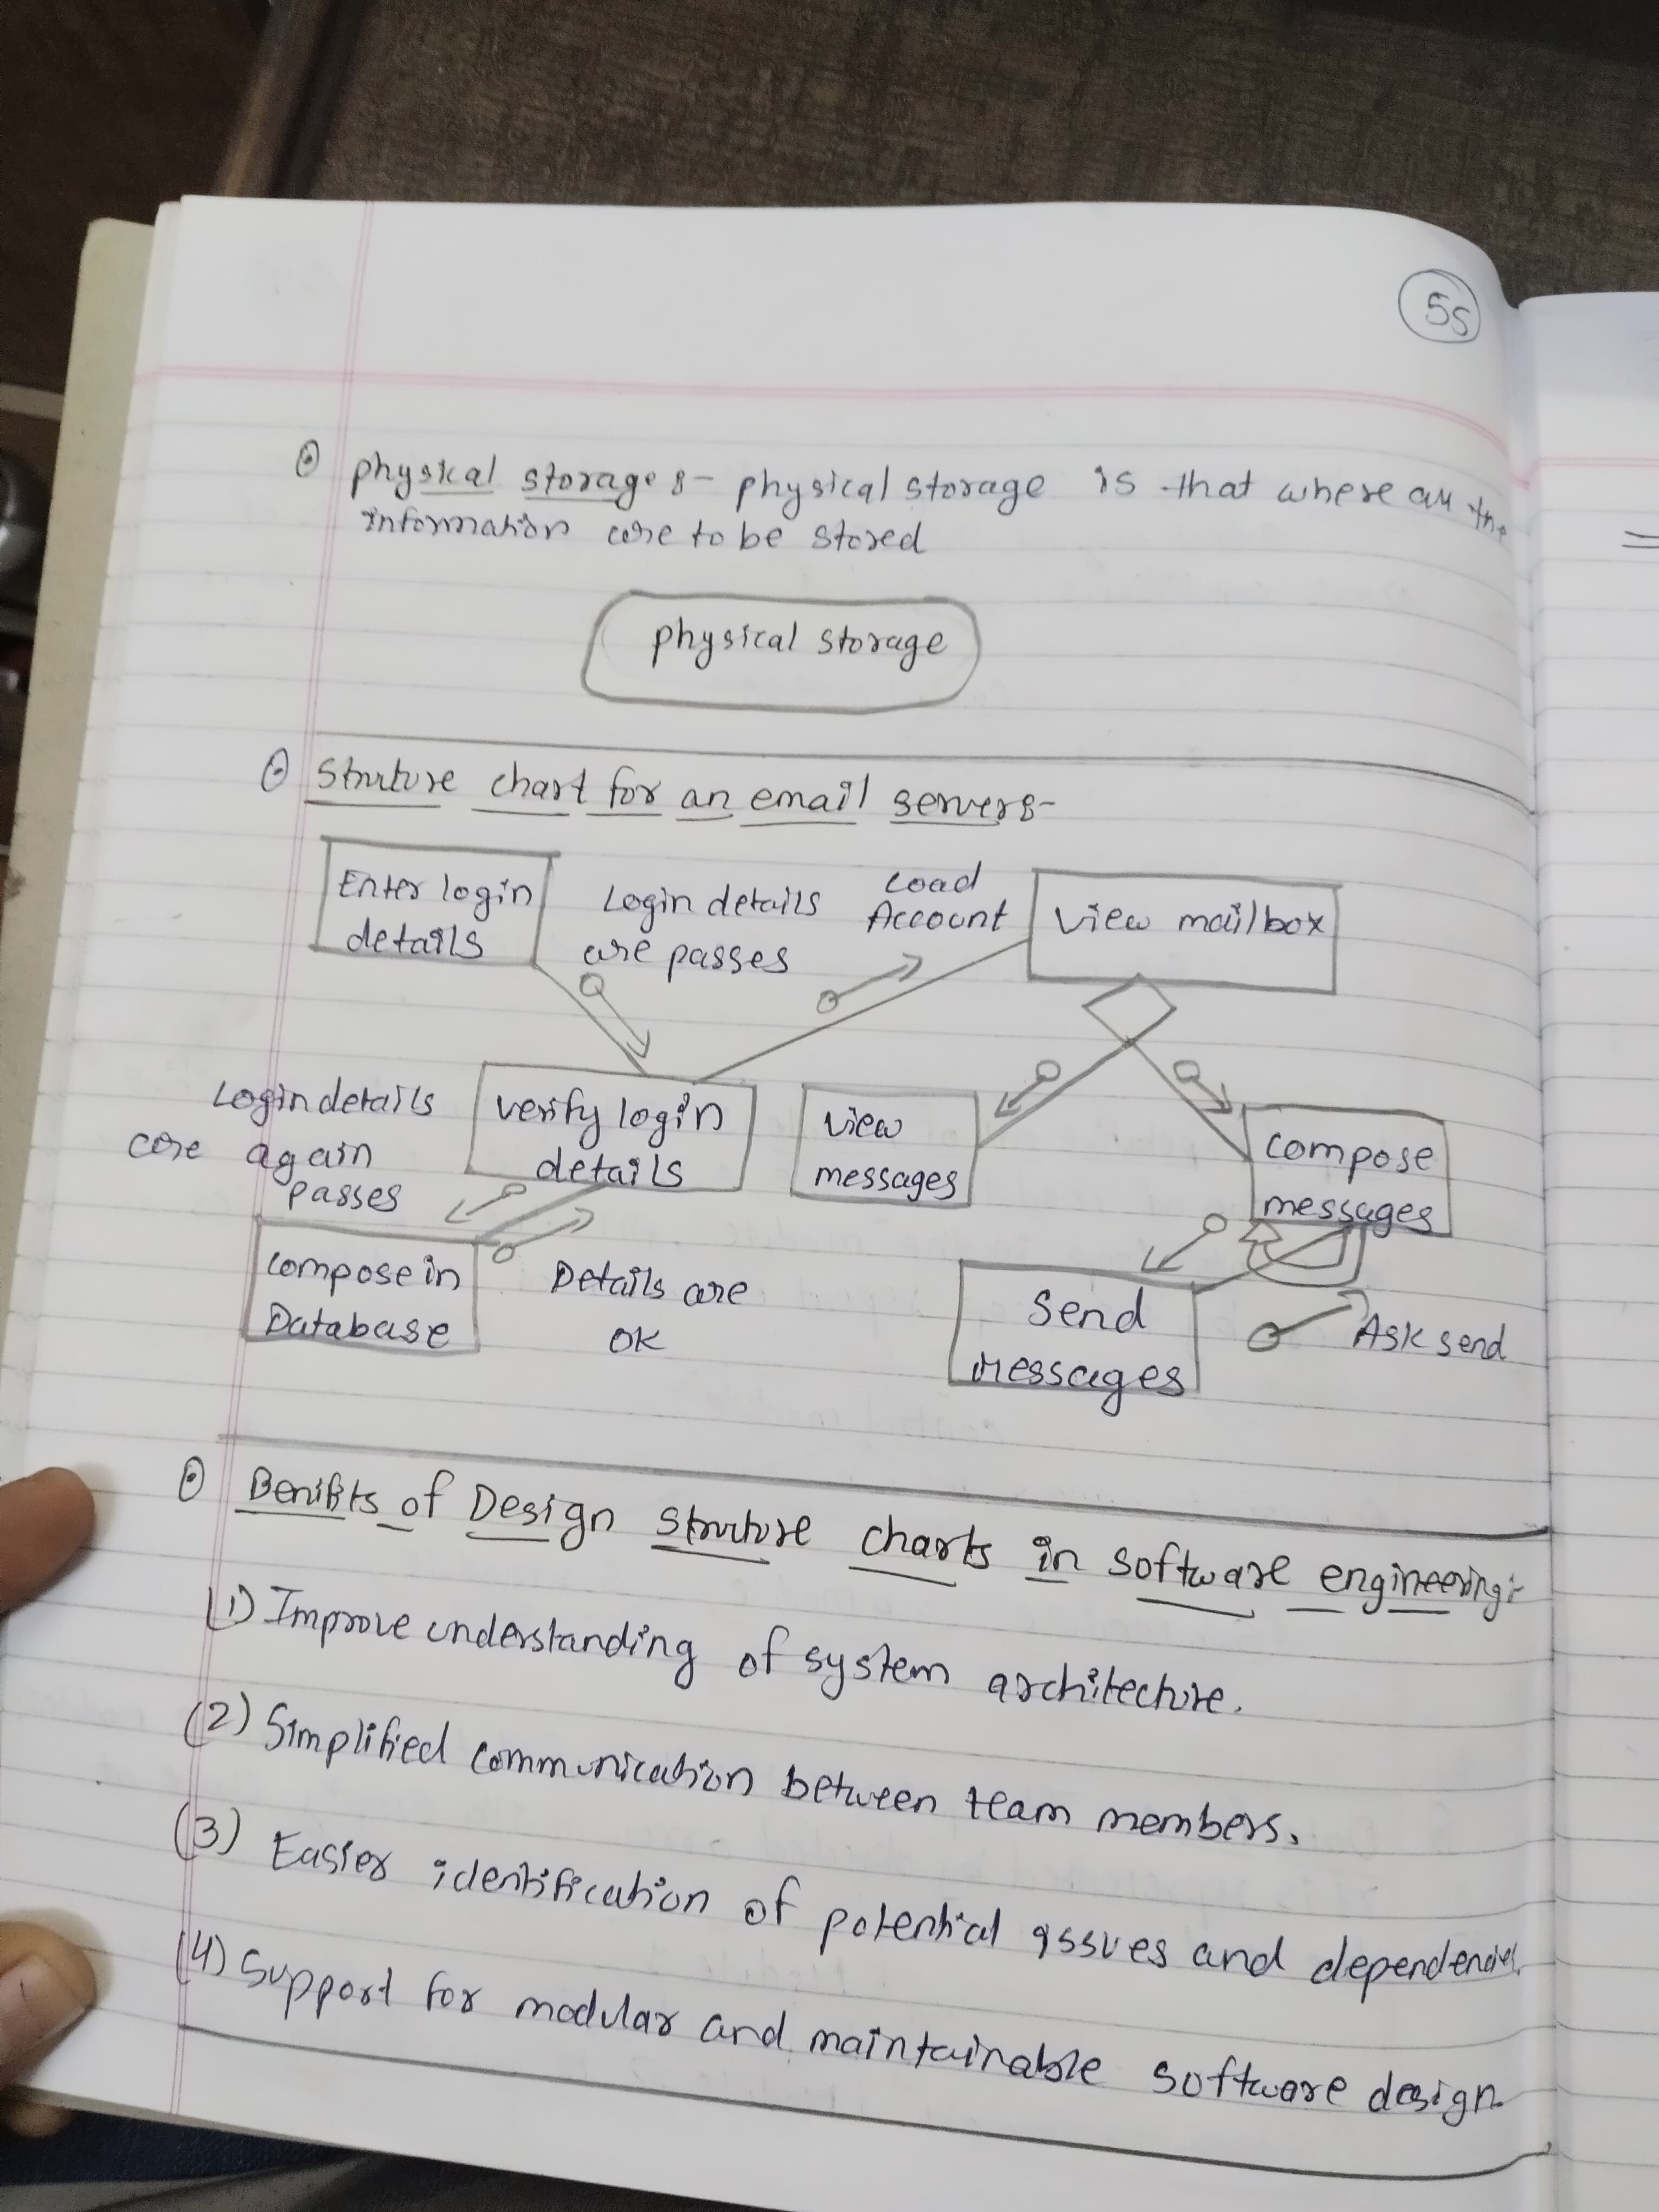 55
physical storage :- physical storage is that where all the
information are to be stored
physical storage
Struture chart for an email server:-
Enter login
details
Login details
are passes
Load
Account
View mailbox
Login details
are again
passes
verify login
details
view
messages
compose
messages
compose in
Database
Details are
OK
Send
messages
Ask send
Benifits of Design Struture charts in software engineering:-
(1) Improve understanding of system architecture.
(2) Simplified communication between team members.
(3) Easier identification of potential issues and dependencies.
(4) Support for modular and maintainable software design.